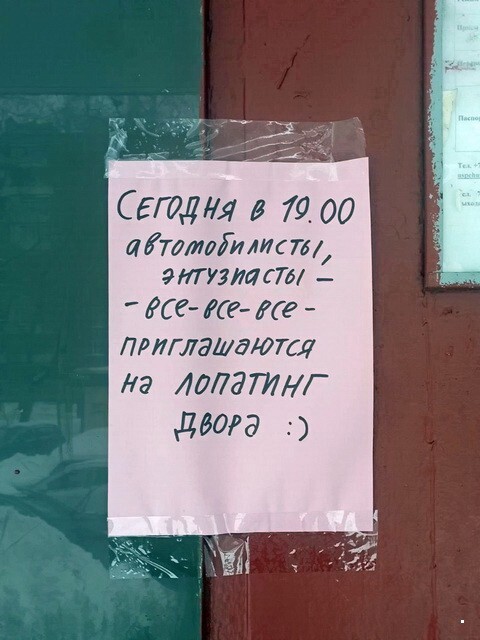 Сегодня в 19.00
автомобилисты,
энтузиасты –
- все-все-все -
приглашаются
на лопатинг
двора :)
Тел.